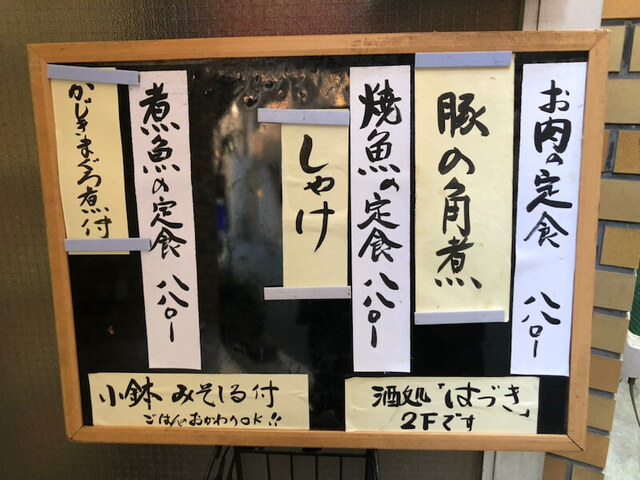 お肉の定食 八八〇ー
豚の角煮
焼魚の定食 八八〇ー
しゃけ
煮魚の定食 八八〇ー
かじきまぐろ煮付
小鉢 みそしる付
ごはんのおかわりOK!!
酒処「はづき」
2Fです